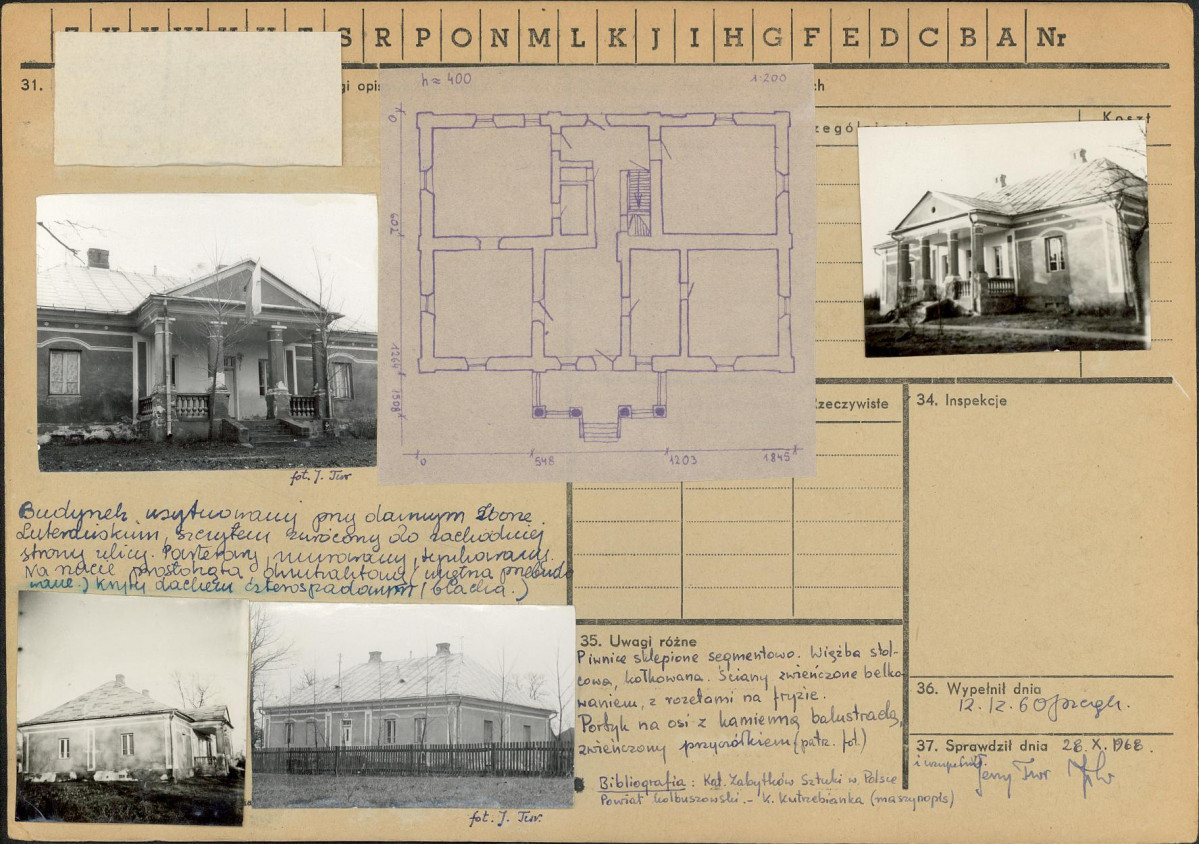 S R P O N M L K J I H G F E D C B A Nr
31.
gi opis
ch
h = 400
1:200
Koszt
0
602
1264
1508
0
548
1203
1845
Rzeczywiste
34. Inspekcje
fot. J. Tur
Budynek usytuowany przy dawnym Zborze
Luterańskim, szczytem zwrócony do zachodniej
strony ulicy. Parterowy, murowany, tynkowany.
Na rzucie prostokąta dwutraktowy (wnętrza przebudo
wane.) Kryty dachem czterospadowym (blacha.)
fot. J. Tur.
35. Uwagi różne
Piwnice sklepione segmentowo. Więźba stol-
cowa, kołkowana. Ściany zwieńczone belko-
waniem, z rozetami na fryzie.
Portyk na osi z kamienną balustradą,
zwieńczony przyczółkiem (patrz. fot.)
Bibliografia: Kat. Zabytków Sztuki w Polsce
Powiat kolbuszowski. - K. Kutrzebianka (maszynopis)
36. Wypełnił dnia
12. IX. 60
37. Sprawdził dnia 28. X. 1968.
i uzupełnił:
Jerzy Tur